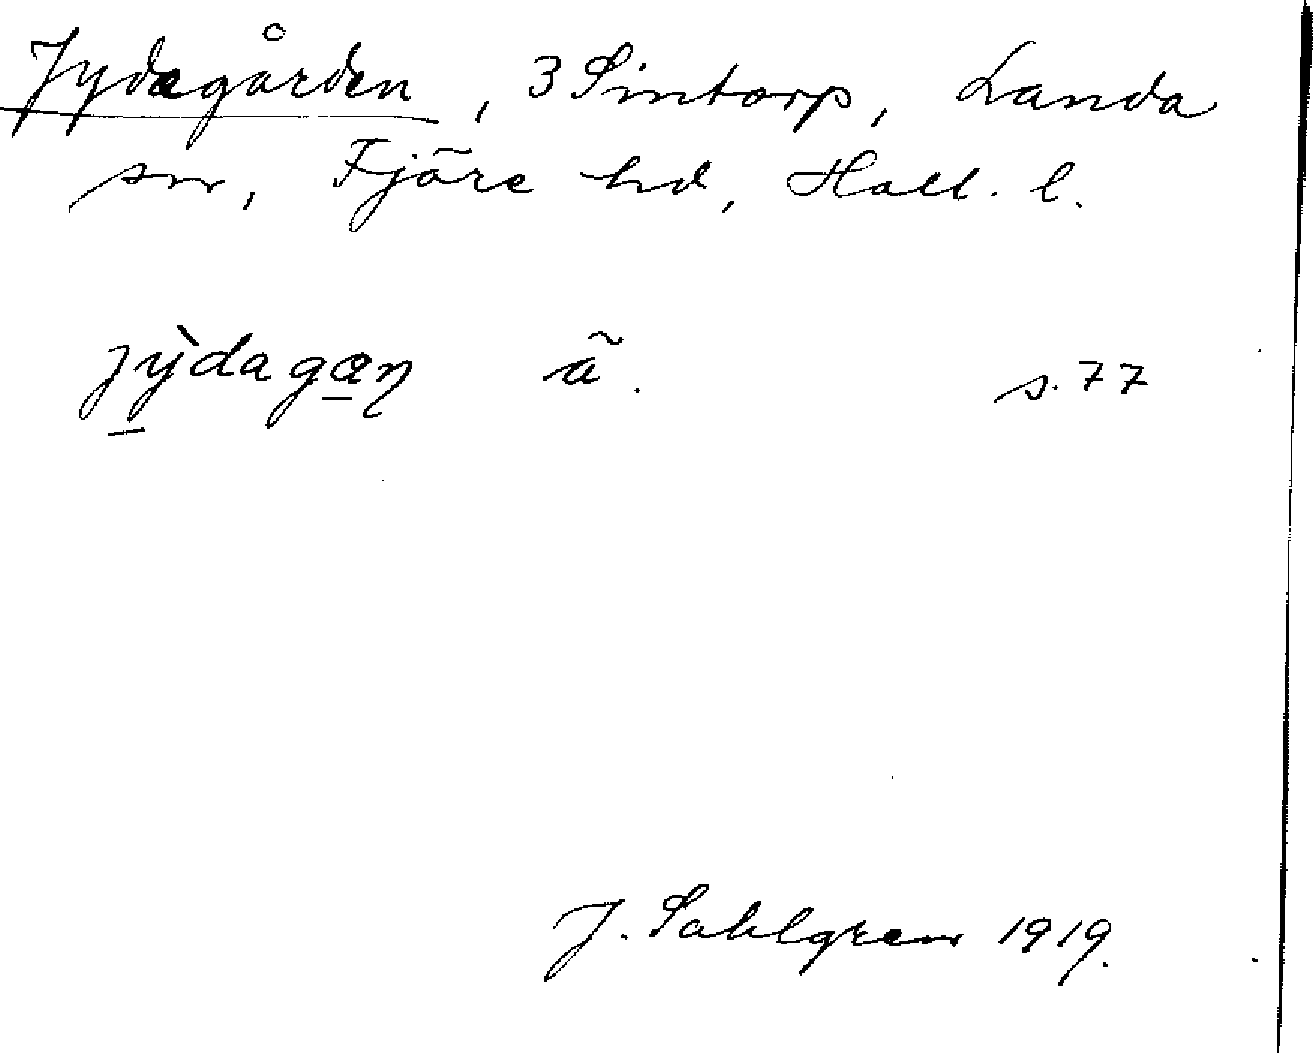 Jydegården, 3 Sintorp, Landa
sn, Fjäre hd, Hall. l.
jỳ̠daga̠n ã. s. 77
J. Sahlgren 1919.